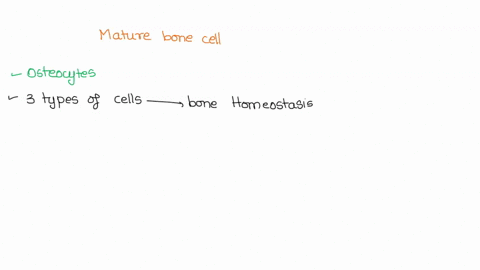 Mature bone cell
Osteocytes
3 types of cells → bone Homeostasis